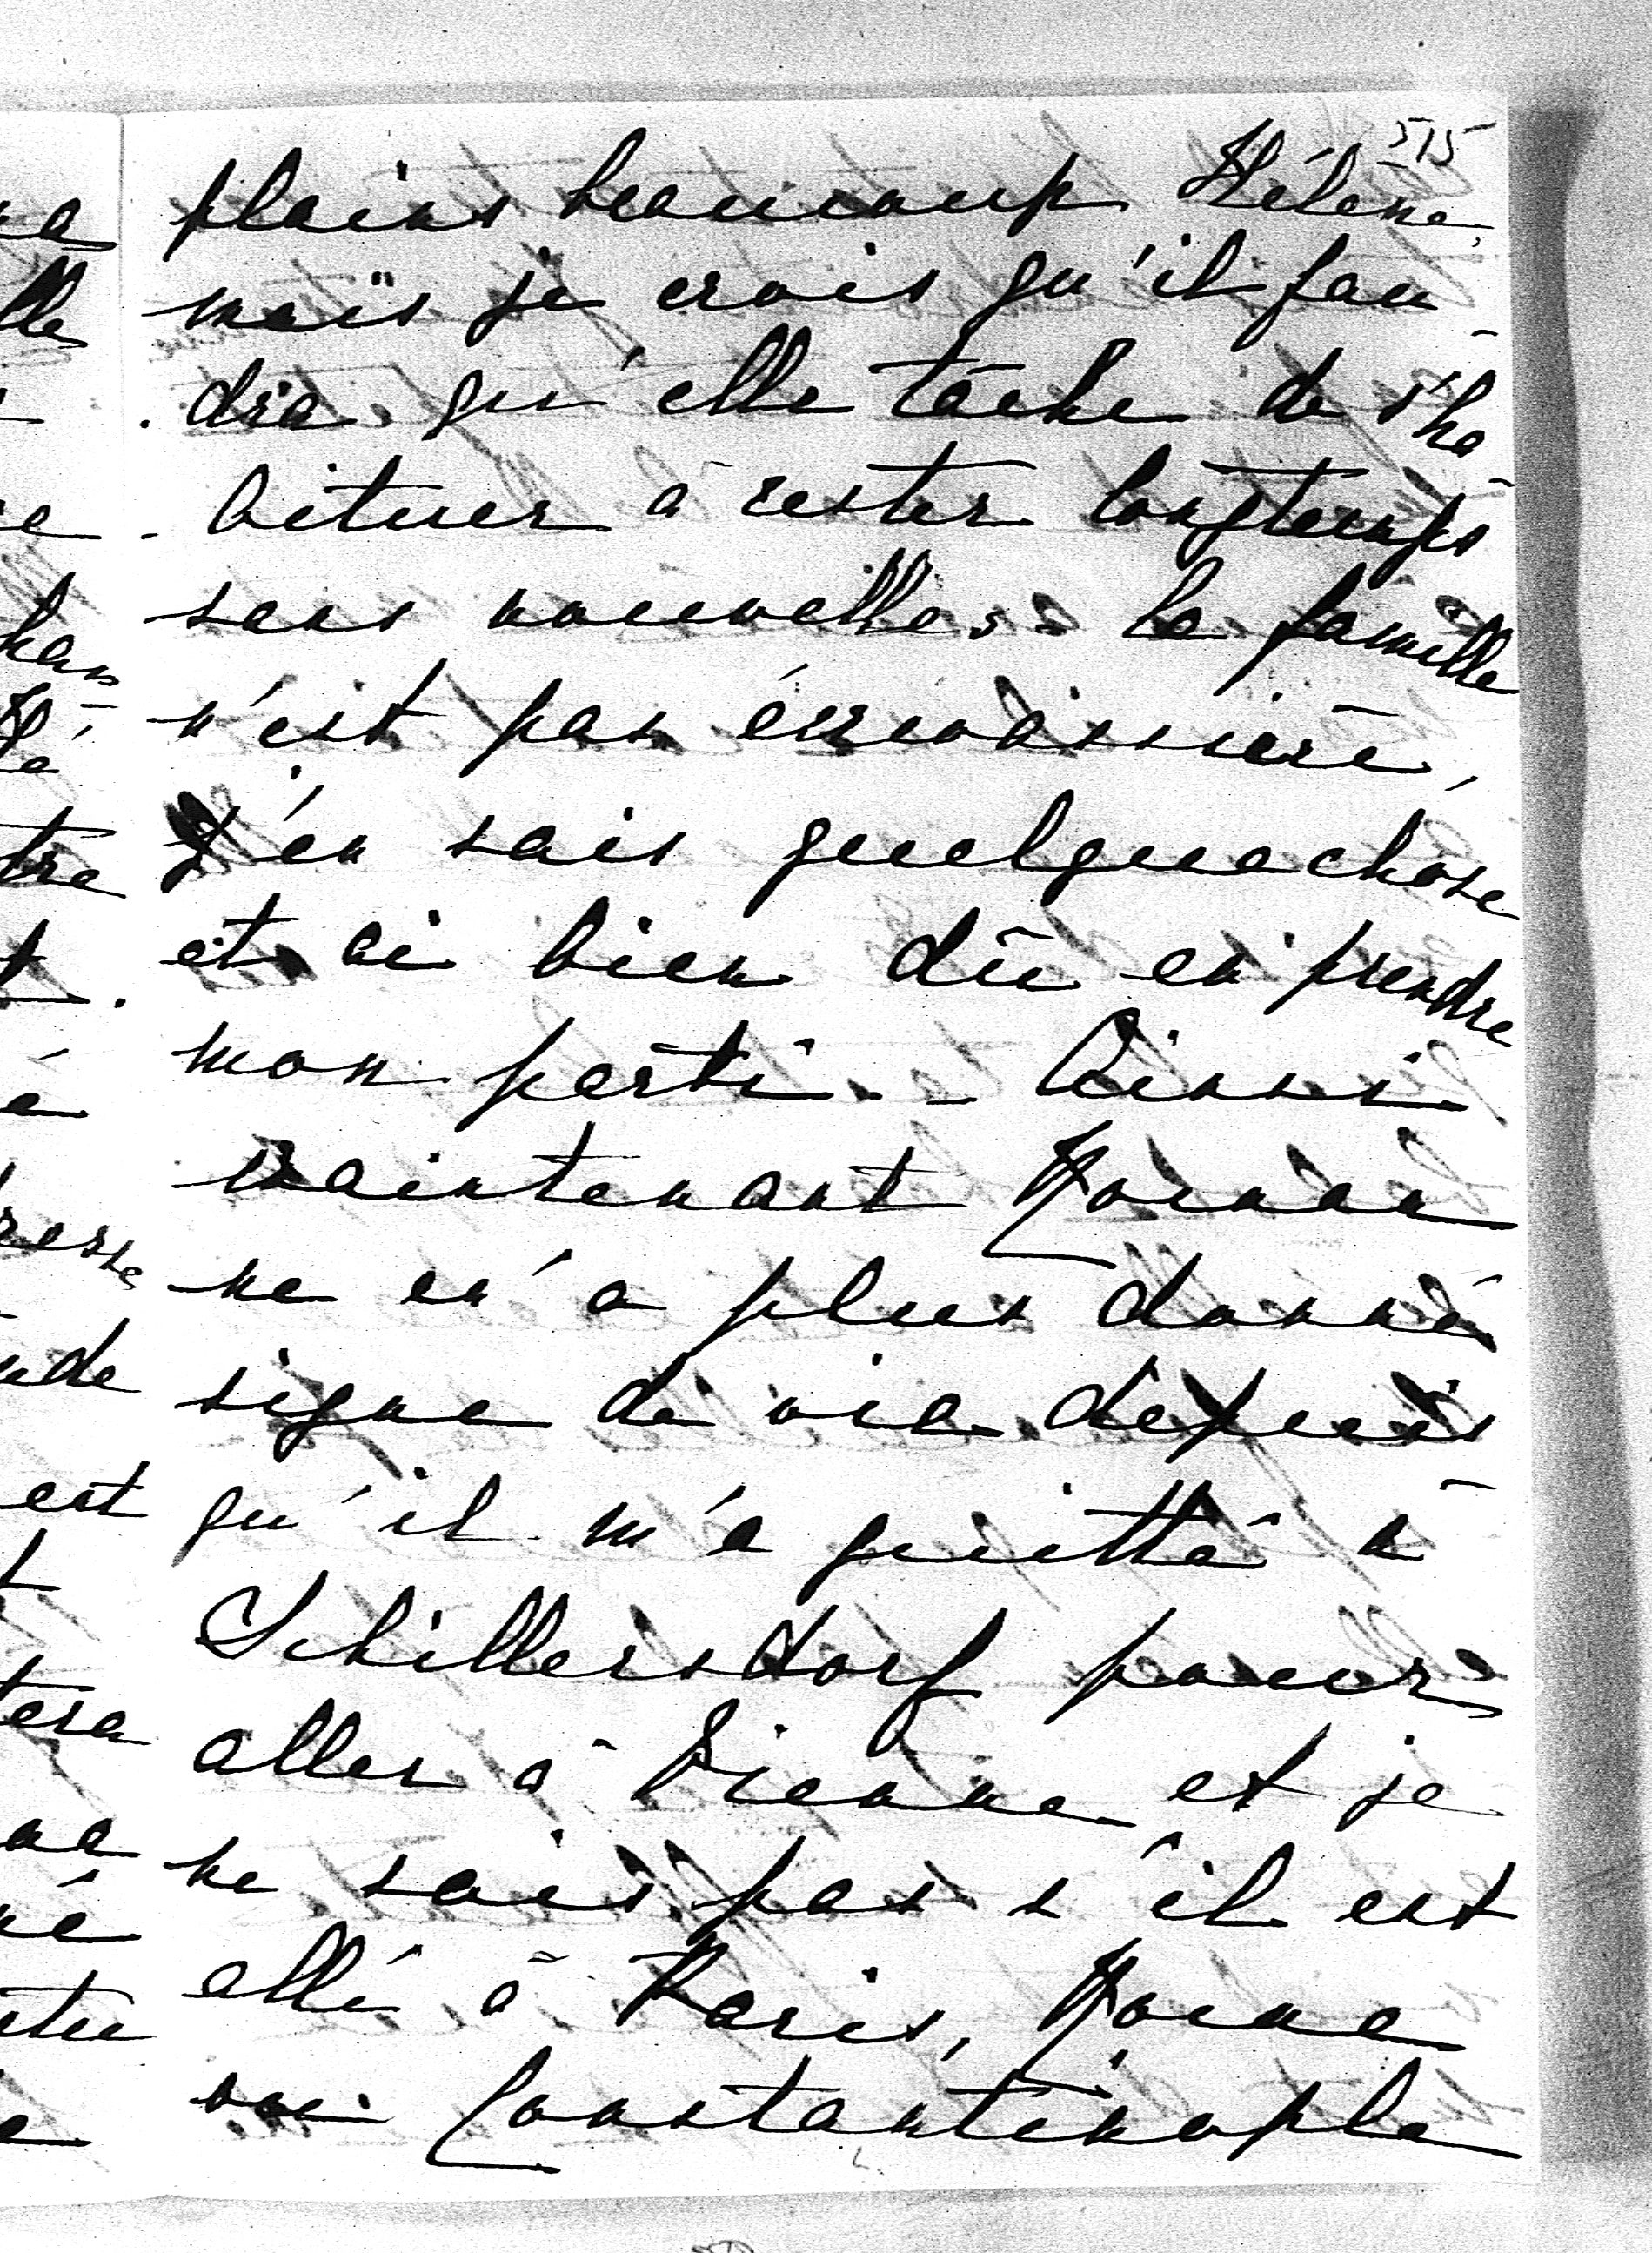 515
plains beaucoup Hélène,
mais je crois qu'il fau-
dra qu'elle tâche de s'ha-
bituer à rester longtemps
sans nouvelles. la famille
n'est pas écrivassière,
J'en sais quelque chose
et ai bien dû en prendre
mon parti. - Ainsi
maintenant
ne m'a plus donné
signe de vie depuis
qu'il m'a quitté à
Schillersdorf pour
aller à Vienne et je
ne sais pas s'il est
allé à Paris, Rome
ou Constantinople